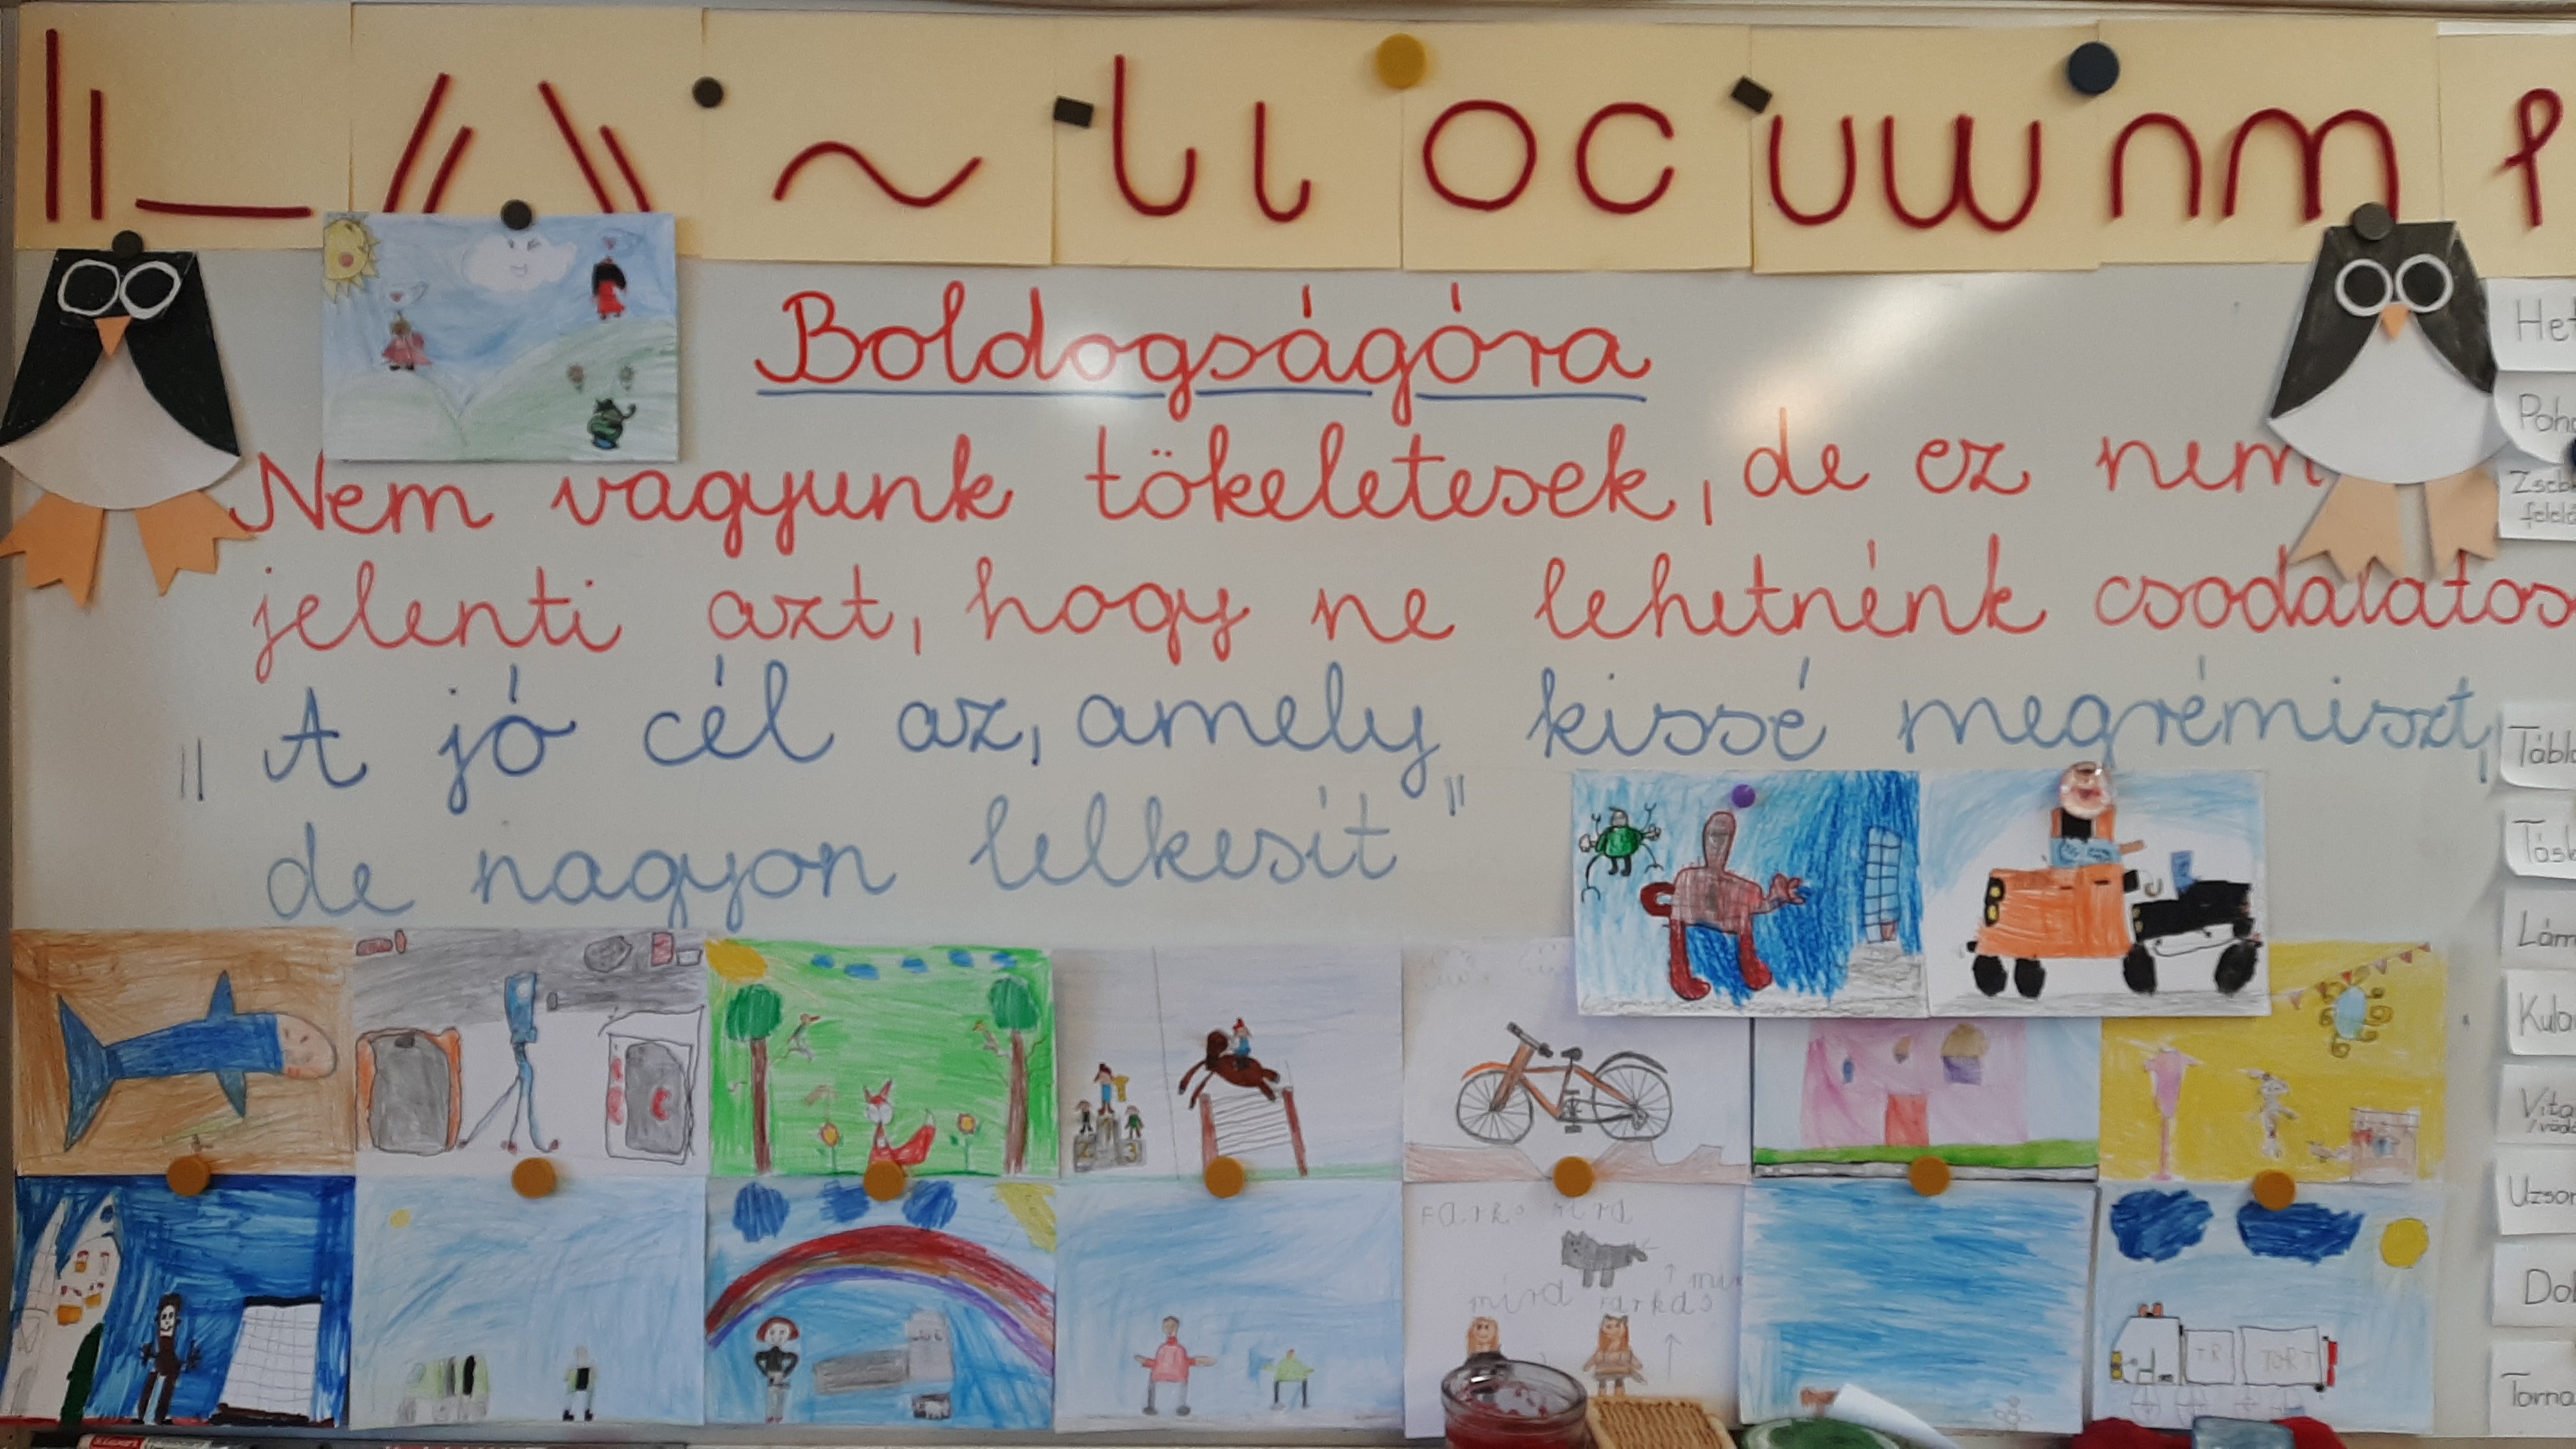 Boldogságóra
Nem vagyunk tökéletesek, de ez nem
jelenti azt, hogy ne lehetnénk csodálatos
"A jó cél az, amely kissé megrémiszt,
de nagyon lelkesít"
Het
Poh
Zseb
felelő
Tábl
Tás
Lám
Kula
Vita
Uzson
Dol
Torna
mird
farkas
TORT